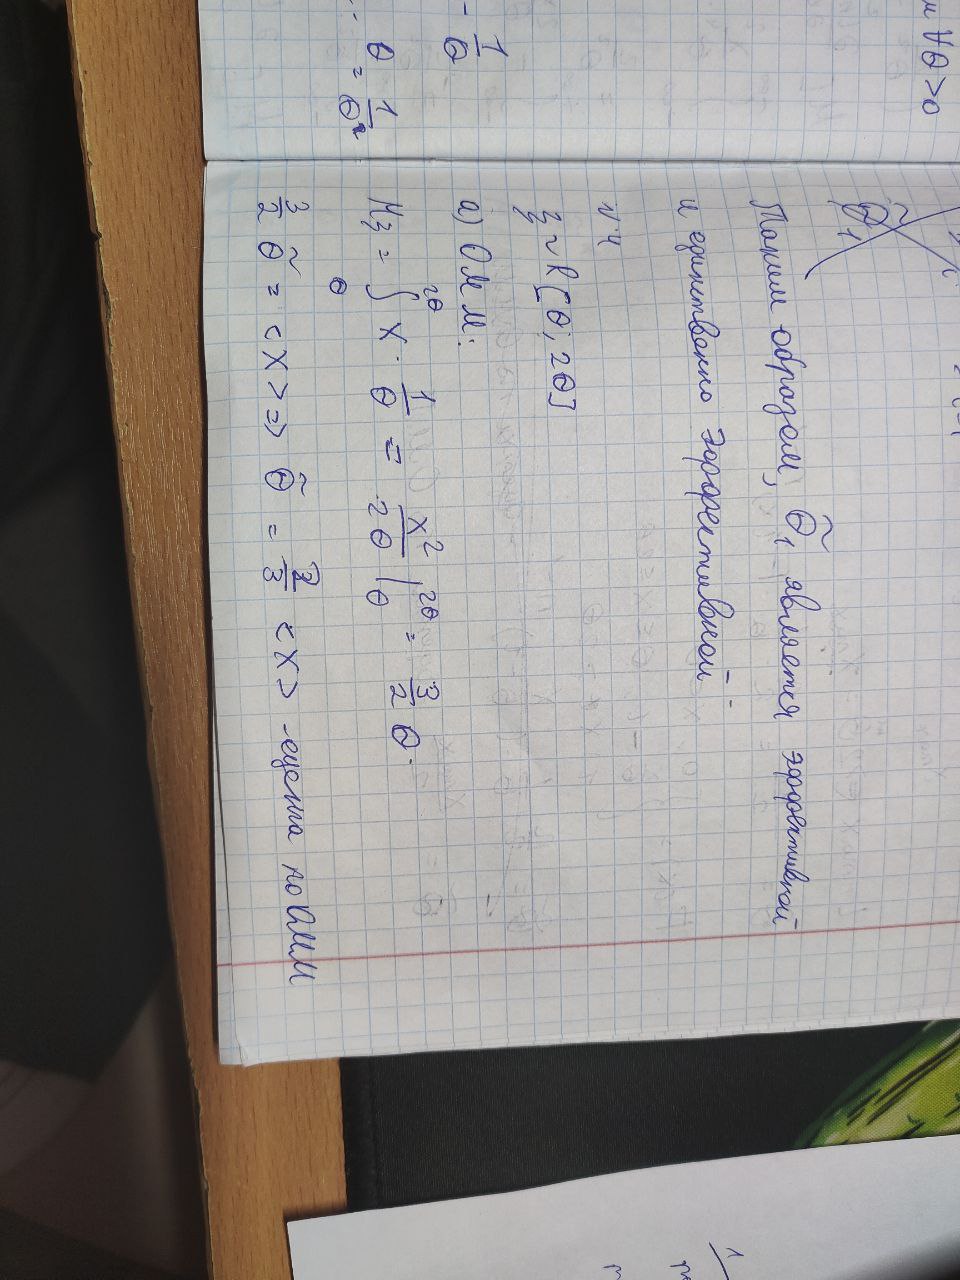 ∀θ>0
θ̃₁
Таким образом, θ̃₁ является эффективной
и единственно эффективной
№4
ξ ~ R[θ; 2θ]
а) ОММ:
Mξ = ∫_θ^{2θ} x · 1/θ = x²/2θ |_θ^{2θ} = 3/2 θ.
3/2 θ̃ = <x> => θ̃ = 2/3 <x> - оценка по ОММ
- 1/θ
θ = 1/θ²